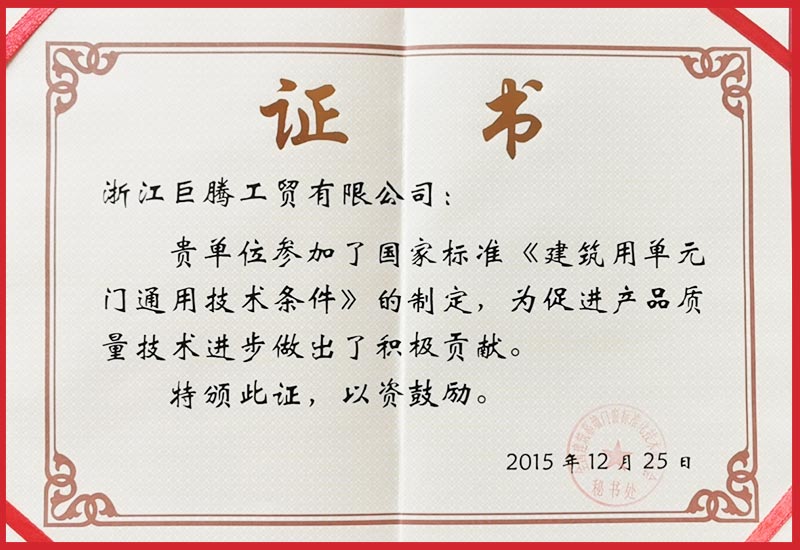 证 书
浙江巨腾工贸有限公司：
贵单位参加了国家标准《建筑用单元
门通用技术条件》的制定，为促进产品质
量技术进步做出了积极贡献。
特颁此证，以资鼓励。
2015 年 12 月 25 日
秘书处